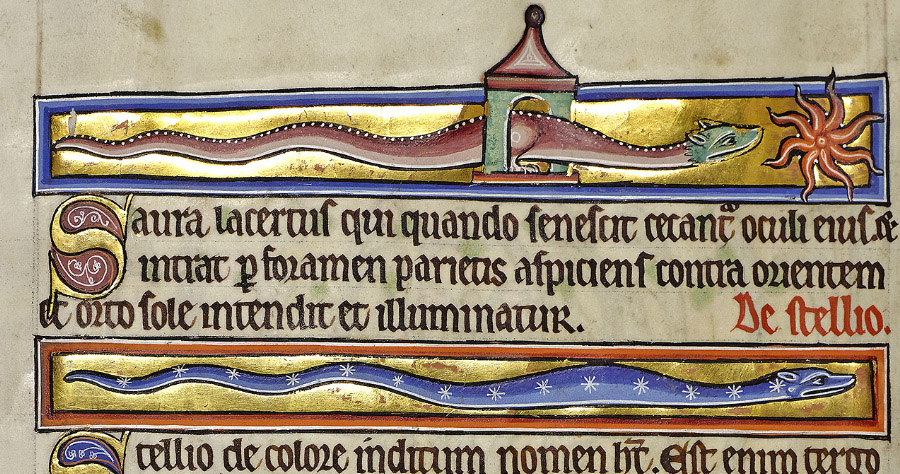 Saura lacertus qui quando senescit cecant͛ oculi eius. &
intrat ꝑ foramen parietis aspiciens contra orientem
et orto sole intendit et illuminatur. De stellio.
Stellio de colore inditum nomen ht̅. Est enim tergo